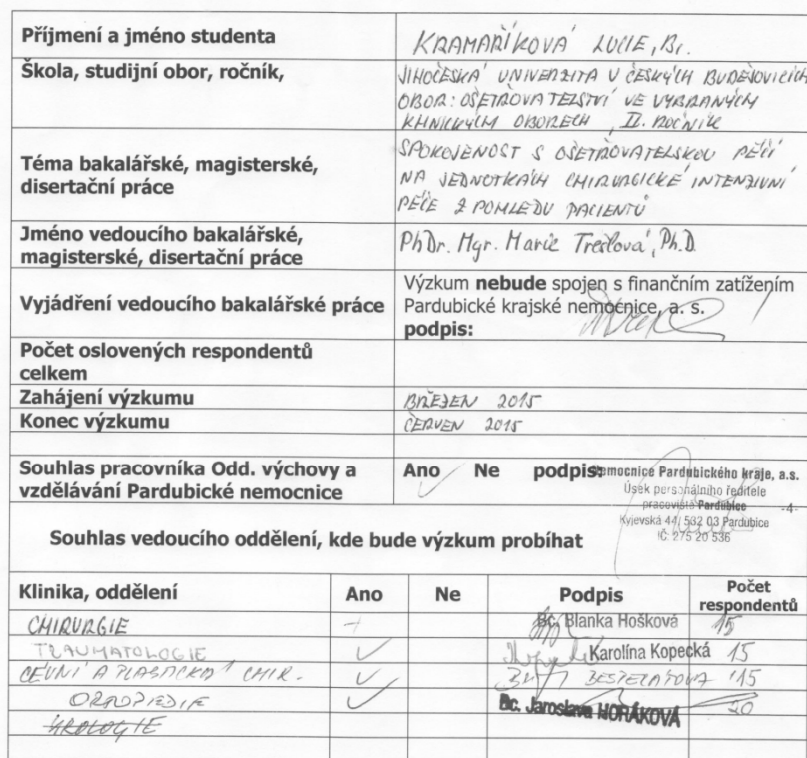 Příjmení a jméno studenta
KRAMAŘÍKOVÁ LUCIE, Bc.
Škola, studijní obor, ročník,
JIHOČESKÁ UNIVERZITA V ČESKÝCH BUDĚJOVICÍCH
OBOR: OŠETŘOVATELSTVÍ VE VYBRANÝCH
KLINICKÝCH OBORECH, II. ROČNÍK
Téma bakalářské, magisterské,
disertační práce
SPOKOJENOST S OŠETŘOVATELSKOU PÉČÍ
NA JEDNOTKÁCH CHIRURGICKÉ INTENZIVNÍ
PÉČE Z POHLEDU PACIENTŮ
Jméno vedoucího bakalářské,
magisterské, disertační práce
PhDr. Mgr. Marie Trešlová, Ph.D.
Vyjádření vedoucího bakalářské práce
Výzkum nebude spojen s finančním zatížením
Pardubické krajské nemocnice, a. s.
podpis:
Počet oslovených respondentů
celkem
Zahájení výzkumu
BŘEZEN 2015
Konec výzkumu
ČERVEN 2015
Souhlas pracovníka Odd. výchovy a
vzdělávání Pardubické nemocnice
Ano Ne podpis:
Nemocnice Pardubického kraje, a.s.
Úsek personálního ředitele
pracoviště Pardubice -4-
Kyjevská 44, 532 03 Pardubice
IČ: 275 20 536
Souhlas vedoucího oddělení, kde bude výzkum probíhat
Klinika, oddělení Ano Ne Podpis Počet respondentů
CHIRURGIE Bc. Blanka Hošková 15
TRAUMATOLOGIE ✓ Karolína Kopecká 15
CÉVNÍ A PLASTICKÁ CHIR. ✓ 15
ORTOPEDIE ✓ Bc. Jaroslava HORÁKOVÁ 20
UROLOGIE